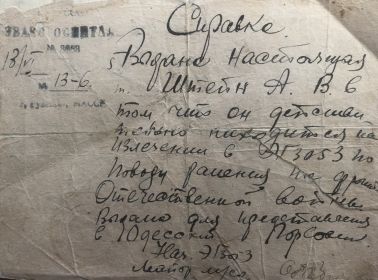 Справка.
ЭВАКО ГОСПИТАЛЬ
18/VI
№ 13-6.
Выдана Настоящая
т. Штейн А. В. в
том что он действи
тельно находится на
Излечении в ЭГ3053 по
Поводу ранения на фронте
Отечественной войны
Выдано для представления
в Одесский
Нач. ЭГ
Майор м/сл.